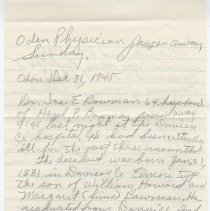 Odon Physician passes away
Sunday.
Odon Dec 31, 1945
Dr. Ira E Bowman 64 husband
of Hazel P. Bowman passed away
9:45 last night at the Daviess
Co hospital. He had been
ill for the past three months
The deceased was born Jan 21
1881 in Daviess Co Elmore Twp
the son of William Howard and
Margaret (Sims) Bowman. He
graduated from